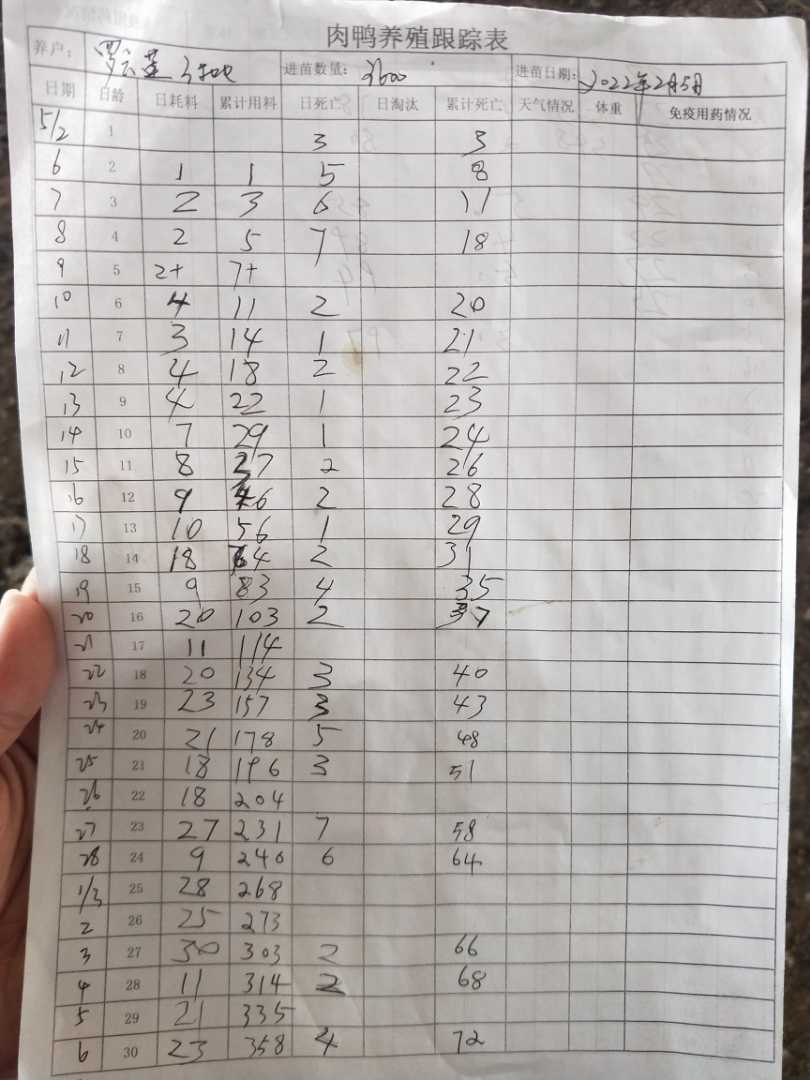 肉鸭养殖跟踪表
养户： 进苗数量：3600 进苗日期：2022年2月5日
日期 日龄 日耗料 累计用料 日死亡 日淘汰 累计死亡 天气情况 体重 免疫用药情况
5/2 1 3 3
6 2 1 1 5 8
7 3 2 3 6 11
8 4 2 5 7 18
9 5 2+ 7+
10 6 4 11 2 20
11 7 3 14 1 21
12 8 4 18 2 22
13 9 4 22 1 23
14 10 7 29 1 24
15 11 8 37 2 26
16 12 9 46 2 28
17 13 10 56 1 29
18 14 18 74 2 31
19 15 9 83 4 35
20 16 20 103 2 37
21 17 11 114
22 18 20 134 3 40
23 19 23 157 3 43
24 20 21 178 5 48
25 21 18 196 3 51
26 22 18 204
27 23 27 231 7 58
28 24 9 240 6 64
1/3 25 28 268
2 26 25 273
3 27 30 303 2 66
4 28 11 314 2 68
5 29 21 335
6 30 23 358 4 72